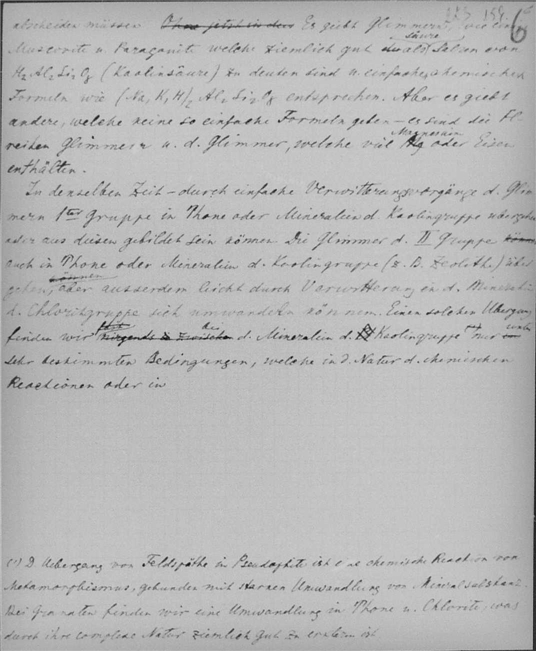 abscheiden müssen Ohne jetzt in den Es giebt Glimmer, wie
Muscovite u Paragonite welche ziemlich gut als Salze von
säure
H2 Al2 Si2 O8 (Kaolinsäure) zu deuten sind u. einfache chemischen
Formeln wie (Na, K, H)2 Al2 Si2 O8 entsprechen. Aber es giebt
andere, welche keine so einfache Formeln geben – es sind die
reihen Glimmer u. d. Glimmer, welche viel Mg oder Eisen
Magnesium
enthälten.
In denselben Zeit – durch einfache Verwitterungsvorgänge d. Glim
mern 1ter Gruppe in Thone oder Mineralien d. Kaolingruppe übergehen
oder aus diesen gebildet sein können Die Glimmer d. II Gruppe können
auch in Thone oder Mineralien d. Kaolingruppe (z. B. Zeolithe) über
gehen, oder ausserdem leicht durch Verwitterung in d. Mineralien
können
d. Chloritgruppe sich umwandeln können. Einen solchen Übergang
finden wir nirgends in zwischen d. Mineralien d. Kaolingruppe nur
bei
unter
sehr bestimmten Bedingungen, welche in d. Natur d. chemischen
Reactionen oder in
(1) D. Uebergang von Feldspäthe in ist eine chemische Reaction von
Metamorphismus, gebunden mit starken Umwandlung von Mineralsubstanz.
Bei Granaten finden wir eine Umwandlung in Thone u. Chlorite, was
durch ihre complexe Natur ziemlich gut zu erklären ist